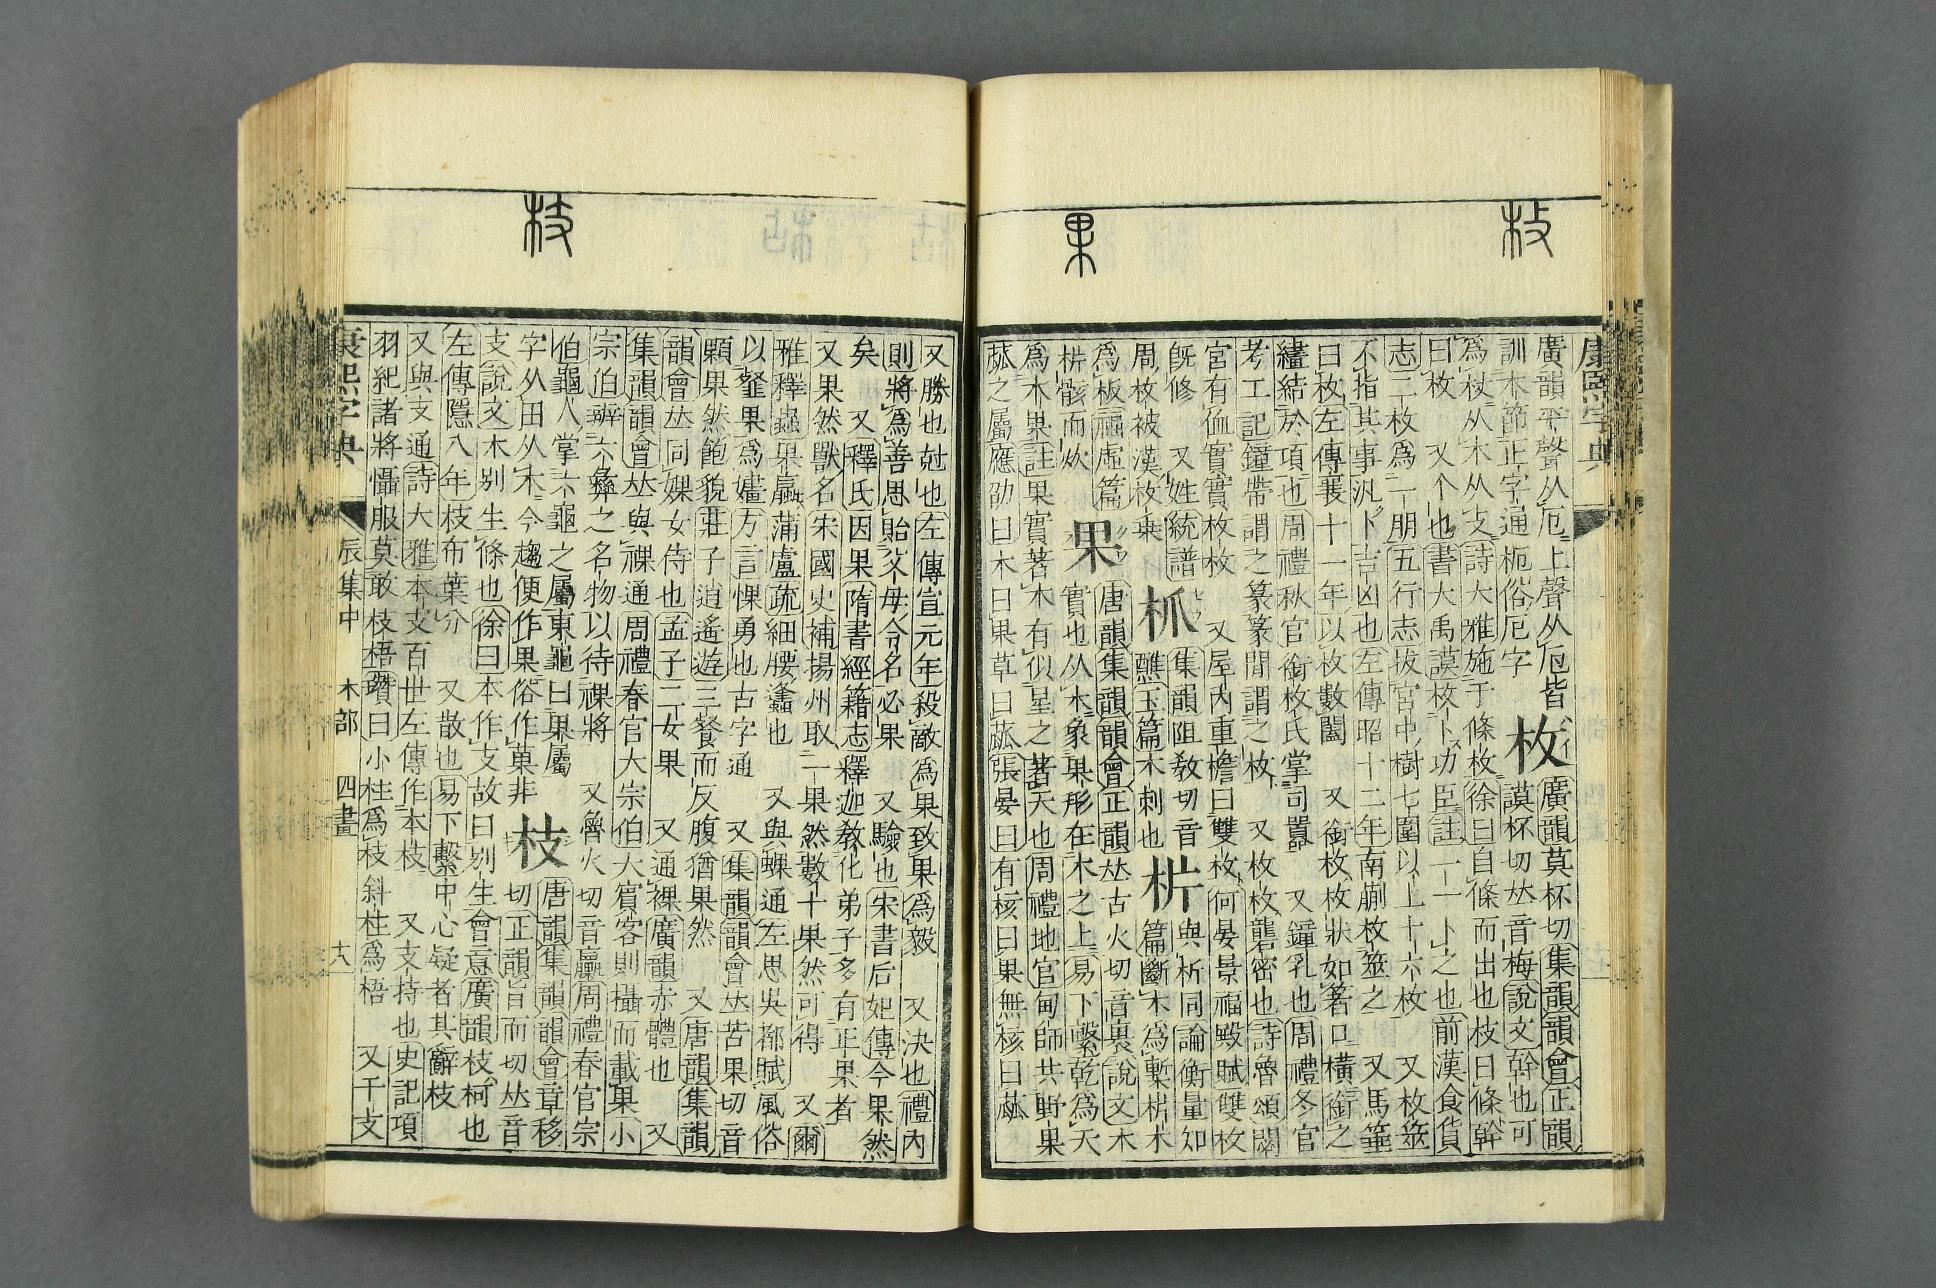 枚
果
康熙字典
廣韻平聲从㔾上聲从卮皆
訓木節正字通枙俗厄字
枚
廣韻莫杯切集韻韻會正韻
謨杯切𠀤音梅說文榦也可
爲杖从木从攴詩大雅施于條枚徐曰自條而出也枝曰條榦
曰枚 又个也書大禹謨枚卜功臣註一一卜之也前漢食貨
志二枚爲一朋五行志拔宮中樹七圍以上十六枚 又枚筮
不指其事汎卜吉凶也左傳昭十二年南蒯枚筮之 又馬箠
曰枚左傳襄十一年以枚數闔 又銜枚枚狀如箸口橫銜之
繣結於項也周禮秋官銜枚氏掌司嚻 又鐘乳也周禮冬官
考工記鐘帶謂之篆篆閒謂之枚 又枚枚礱密也詩魯頌閟
宮有侐實實枚枚 又屋內重檐曰雙枚何晏景福殿賦雙枚
旣修 又姓統譜
周枚被漢枚乗
枛
集韻阻敎切音
醮玉篇木刺也
枿
與析同論衡量如
篇斷木爲槧枿木
爲板福虛篇
枿骸而炊
果
唐韻集韻韻會正韻𠀤古火切音裹說文木
實也从木象果形在木之上易下繫乾爲天
爲木果註果實著木有似星之著天也周禮地官甸師共野果
蓏之屬應劭曰木曰果草曰蓏張晏曰有核曰果無核曰蓏
枝
又勝也尅也左傳宣元年殺敵爲果致果爲毅 又決也禮內
則將爲善思貽父母令名必果 又驗也宋書后妃傳今果然
矣 又釋氏因果隋書經籍志釋迦敎化弟子多有正果者
又果然獸名宋國史補揚州取一果然數十果然可得 又爾
雅釋蟲果臝蒲盧疏細腰蠭也 又與蜾通左思吳都賦風俗
以韰果爲嫿方言惈勇也古字通 又集韻韻會𠀤苦果切音
顆果然飽貌莊子逍遙遊三餐而反腹猶果然 又唐韻集韻
韻會𠀤同婐女侍也孟子二女果 又通裸廣韻赤體也 又
集韻韻會𠀤與祼通周禮春官大宗伯大賓客則攝而載果小
宗伯辨六彝之名物以待祼將 又魯火切音臝周禮春官宗
伯龜人掌六龜之屬東龜曰果屬
字从田从木今趨便作果俗作菓非
枝
唐韻集韻韻會章移
切正韻旨而切𠀤音
支說文木别生條也徐曰本作支故曰别生會意廣韻枝柯也
左傳隱八年枝布葉分 又散也易下繫中心疑者其辭枝
又與支通詩大雅本支百世左傳作本枝 又支持也史記項
羽紀諸將懾服莫敢枝梧瓚曰小柱爲枝斜柱爲梧 又千支
康熙字典
辰集中 木部 四畫
十八